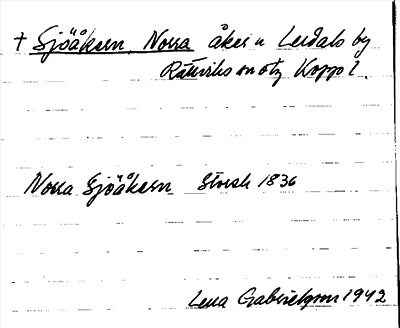 † Sjöåkern, Norra åker u Leksdals by
Rättviks sn o tg Kopp l.
Norra Sjöåkern Storsk 1836
Lena Gabrielsson 1942